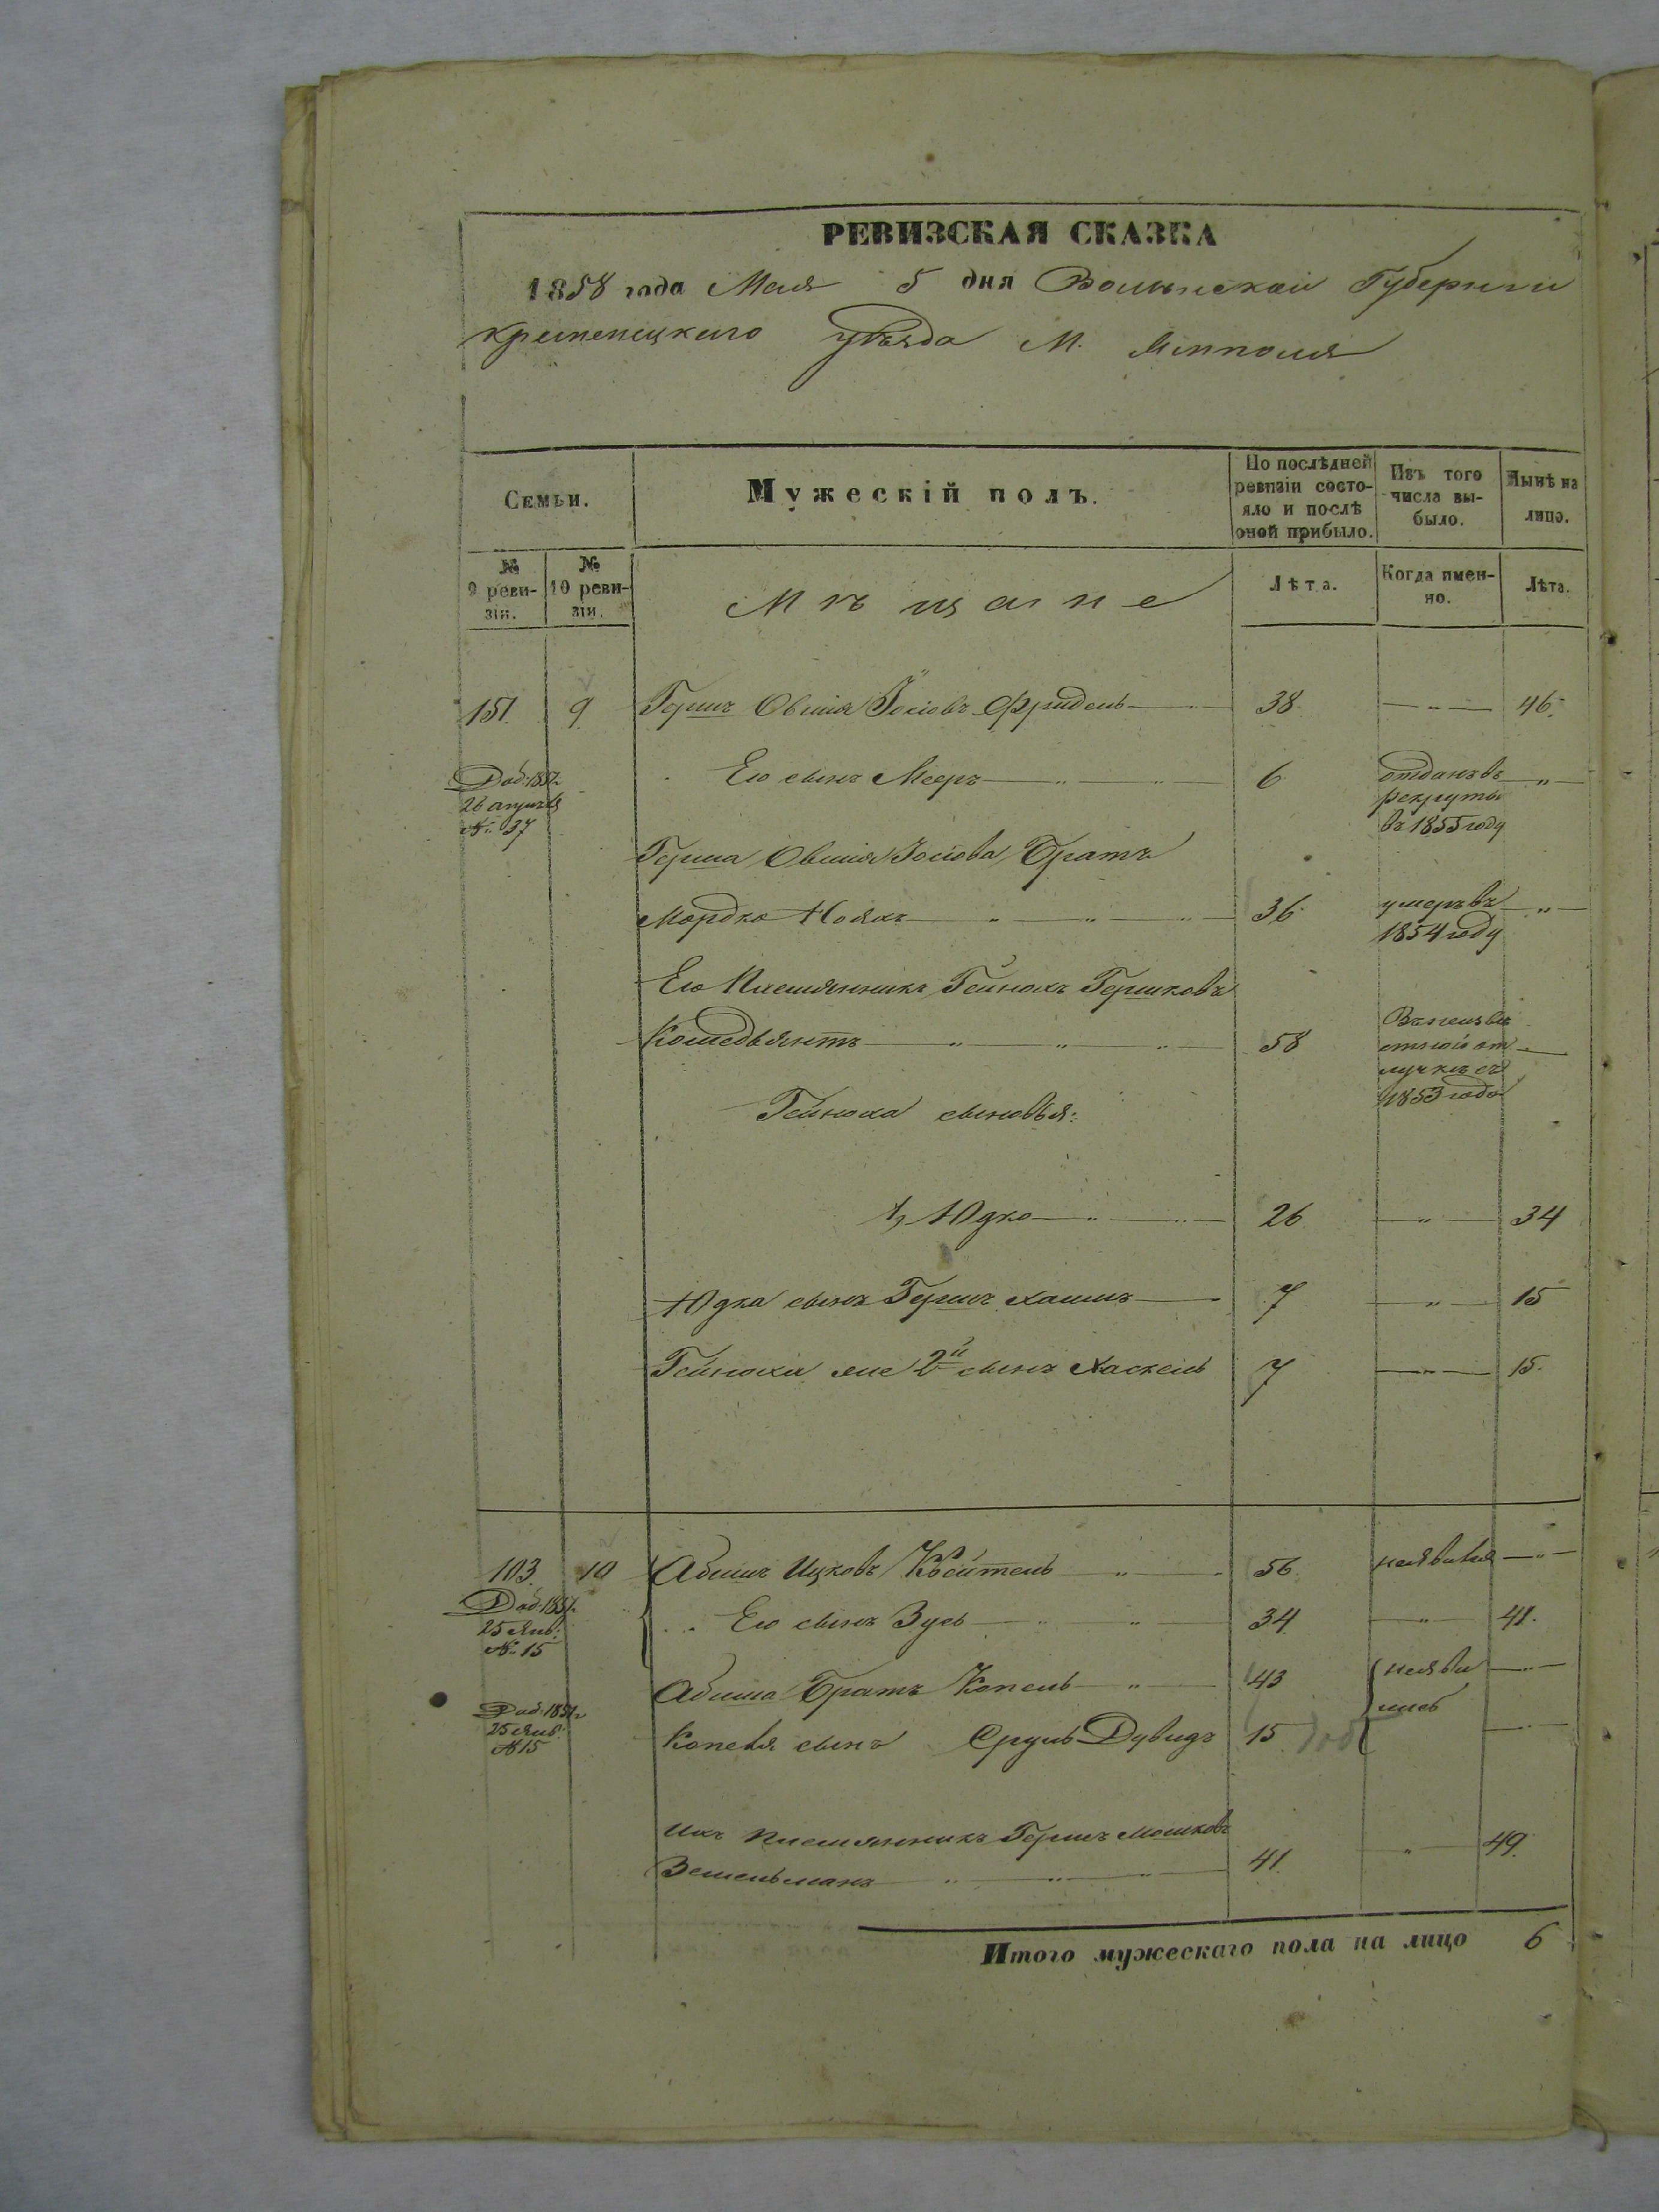 РЕВИЗСКАЯ СКАЗКА
1858 года Мая 5 дня Волынской Губернии
Кременецкого уѣзда М. Ямполя
Семьи.
Мужескій полъ.
По послѣдней ревизіи состояло и послѣ оной прибыло.
Изъ того числа выбыло.
Нынѣ на лицо.
№ 9 ревизіи.
№ 10 ревизіи.
Мѣщане
Лѣта.
Когда именно.
Лѣта.
151 9 Гершъ Овшія Іосіовъ Фридель 38 — " — 46
Доб: 1851 г. 26 августа № 37
Его сынъ Мееръ — " — " — 6 отданъ въ рекруты въ 1855 году — " —
Герша Овшія Іосіова Братъ
Мордко Нояхъ — " — " — " — 36 умеръ въ 1854 году — " —
Его Племянникъ Гейнохъ Гершковъ
Комедьянтъ — " — " — " — 58 Въ неизвѣстной отлучкѣ съ 1853 года —
Гейноха сыновья:
1, Юдко — " — " — 26 — " — 34
Юдка сынъ Гершъ Хаимъ — 7 — " — 15
Гейноха же 2й сынъ Хаскель 7 — " — 15.
103. 10 Абишъ Ицковъ Квейтель — " — 56 неявился — " —
Доб: 1851 г. 25 Янв: № 15
Его сынъ Зусь — " — " — 34 — " — 41.
Абиша Братъ Копель — " — 43 неявились — " —
Доб: 1851 г. 25 Янв: № 15
Копеля сынъ Сруль Дувидъ 15 — " —
Ихъ племянникъ Гершъ Мошковъ
Зешельманъ — " — " — " — 41. " 49.
Итого мужескаго пола на лицо 6